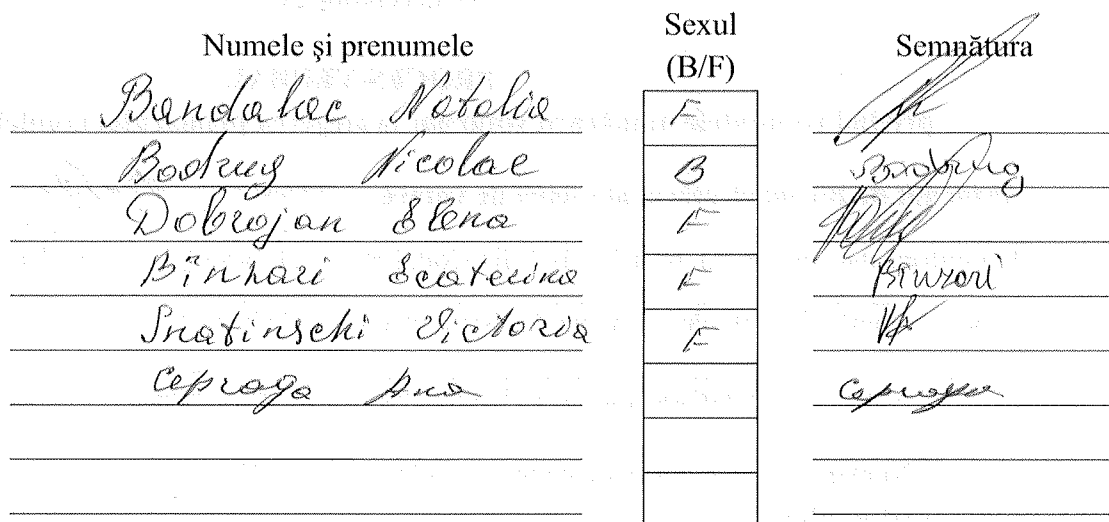 Numele şi prenumele Sexul (B/F) Semnătura
Bandalac Natalia F
Bodrug Nicolae B Bodrug
Dobrojan Elena F
Bînzari Ecaterina F Bînzari
Snatinschi Victoria F
Ceproga Ana Ceproga